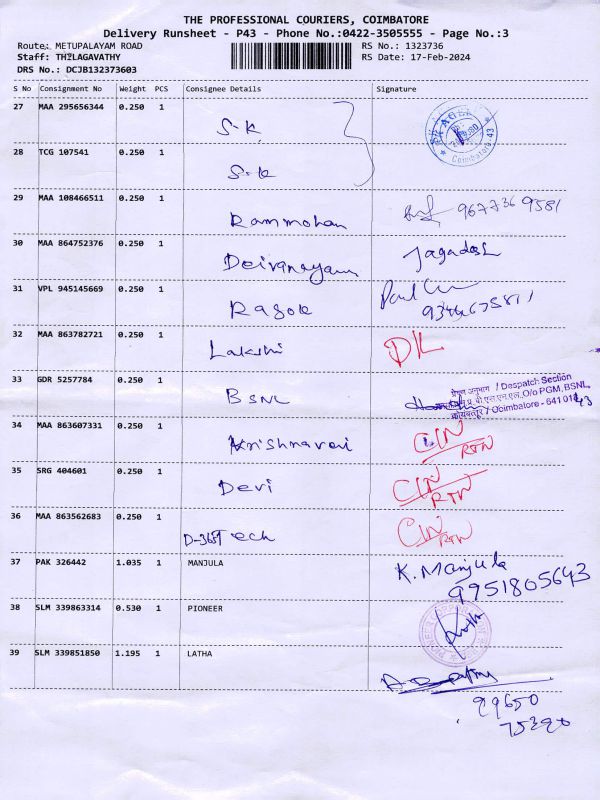 THE PROFESSIONAL COURIERS, COIMBATORE
Delivery Runsheet - P43 - Phone No.:0422-3505555 - Page No.:3
Route: METUPALAYAM ROAD
RS No.: 1323736
Staff: THILAGAVATHY
RS Date: 17-Feb-2024
DRS No.: DCJB132373603
S No Consignment No Weight PCS Consignee Details Signature
27 MAA 295656344 0.250 1 S-K
Coimbatore-43
28 TCG 107541 0.250 1 S-K
29 MAA 108466511 0.250 1 Rammohan 9677369581
30 MAA 864752376 0.250 1 Deivanayam Jagadesh
31 VPL 945145669 0.250 1 Rasok Paul
32 MAA 863782721 0.250 1 Lakshi D/L
33 GDR 5257784 0.250 1 BSNL
प्रेषण अनुभाग / Despatch Section
O/o PGM, BSNL,
कोयंबत्तूर / Coimbatore - 641 043
34 MAA 863607331 0.250 1 Krishnaveni C/N RTN
35 SRG 404601 0.250 1 Devi C/N RTN
36 MAA 863562683 0.250 1 D-365 Tech C/N RTN
37 PAK 326442 1.035 1 MANJULA K. Manjula
9951805643
38 SLM 339863314 0.530 1 PIONEER Latha
39 SLM 339851850 1.195 1 LATHA
99650
75390